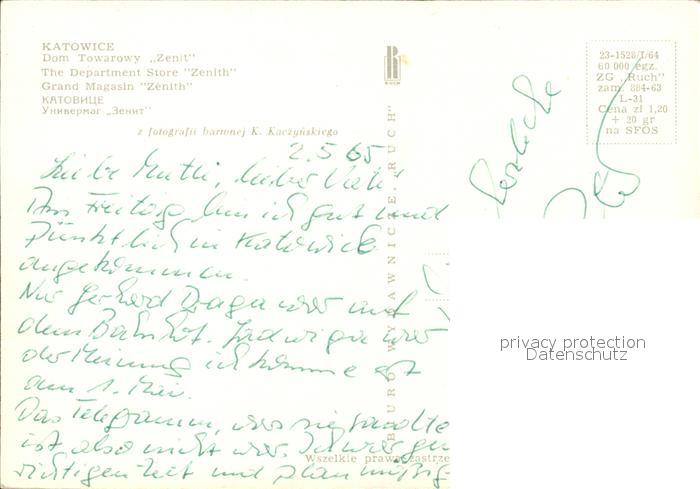 KATOWICE
Dom Towarowy „Zenit"
The Department Store "Zenith"
Grand Magasin "Zénith"
КАТОВИЦЕ
Универмаг „Зенит"
z fotografii barwnej K. Kaczyńskiego
BIURO WYDAWNICZE „RUCH"
23-1528/I/64
60 000 egz.
ZG „Ruch"
zam. 884-63
L-31
Cena zł 1,20
+ 20 gr
na SFOS
2.5.65
Liebe Mutti, lieber Vati!
Am Freitag bin ich gut und
pünktlich in Katowice
angekommen.
Nur Gerhard war auf
dem Bahnhof. Jadwiga war
der Meinung ich komme erst
am 1. Mai.
Das Telegramm, was sie sandte
ist also nicht war. Ich war zur
richtigen Zeit und planmäßig
Herzliche
Wszelkie prawa zastrze
privacy protection
Datenschutz